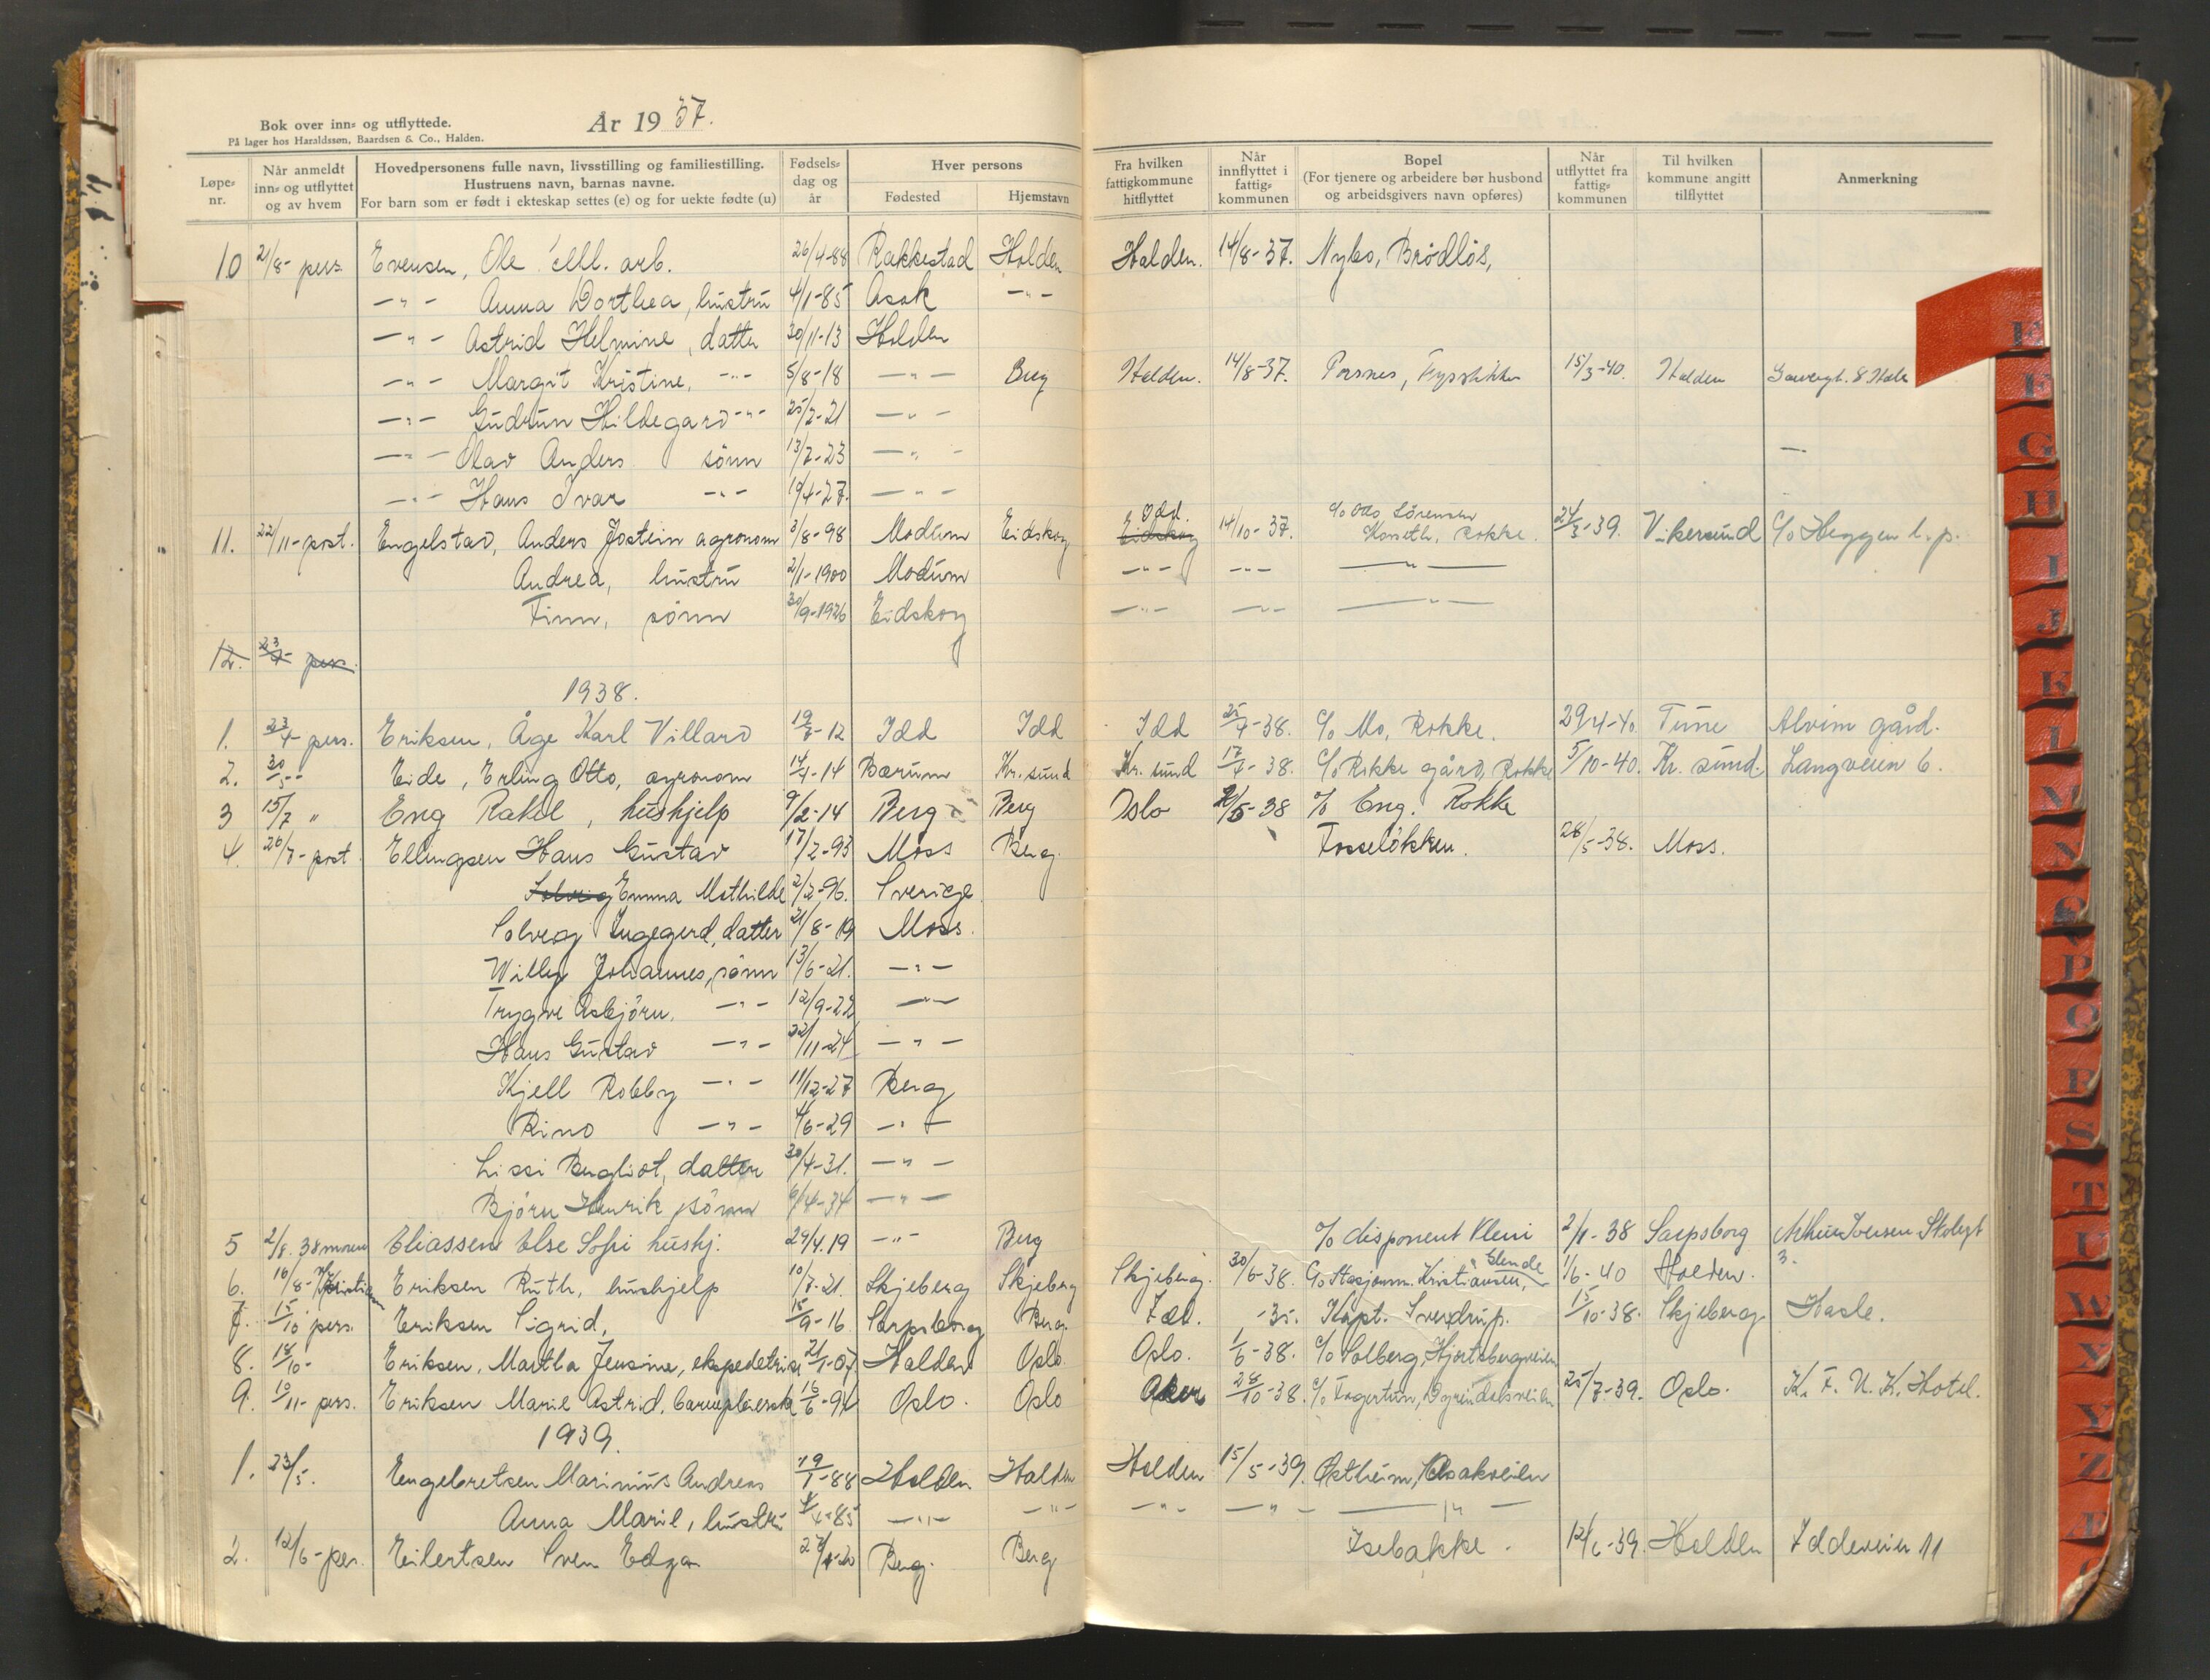 Bok over inn- og utflyttede.
På lager hos Haraldssøn, Baardsen & Co., Halden.
År 1937.
Løpe-nr. Når anmeldt inn- og utflyttet og av hvem Hovedpersonens fulle navn, livsstilling og familiestilling. Hustruens navn, barnas navne. For barn som er født i ekteskap settes (e) og for uekte fødte (u) Fødsels-dag og år Hver persons Fødested Hjemstavn Fra hvilken fattigkommune hitflyttet Når innflyttet i fattig-kommunen Bopel (For tjenere og arbeidere bør husbond og arbeidsgivers navn opføres) Når utflyttet fra fattig-kommunen Til hvilken kommune angitt tilflyttet Anmerkning
10 21/8- pers. Evensen, Ole Alb. arb. 26/4-88 Rakkestad Halden Halden. 14/8-37. Nybo, Brødløs,
-"- Anna Dorthea, hustru 4/1-85 Asak -"-
-"- Astrid Helmine, datter 30/11-13 Halden
-"- Margit Kristine, -"- 5/8-18 -"- Berg Halden. 14/8-37. Porsnes, 15/3-40. Halden
-"- Gudrun Hildegard -"- 25/2-21 -"-
-"- Olav Anders sönn 13/7-23 -"-
-"- Hans Ivar -"- 19/4-27. -"-
11. 22/11-post. Engelstad, Anders Jostein agronom 3/8-98 Modum Eidskog Eidskog Idd. 14/10-37. c/o Otto Sörensen Korseth, Rokke. 24/3-39. Vikersund c/o Heggen l.p.
Andrea, hustru 2/1-1900 Modum -"- -"- -"-
Finn, sönn 30/9-1926 Eidskog -"- -"- -"-
12. 23/4- pers.
1938.
1. 23/4 pers. Eriksen, Åge Karl Villard 19/7-12 Idd Idd Idd 25/4-38. c/o Mo, Rokke. 29/4-40 Tune Alvim gård.
2. 30/5 -"- Eide, Erling Otto, agronom 14/4-14 Bærum Kr. sund Kr. sund 17/4-38. c/o Rokke gård, Rokke 5/10-40. Kr. sund. Langveien 6.
3 15/7 " Eng Rakel, hushjelp 9/2-14 Berg Berg Oslo 2/5-38 c/o Eng. Rokke
4. 26/7-post Ellingsen Hans Gustav 17/2-93 Moss Berg. Fosseløkken. 28/5-38. Moss.
Solveig Emma Mathilde 2/2-96. Sverige
Solveig Ingegerd, datter 21/8-19 Moss.
Willy Johannes, sönn 13/6-21. -"-
Trygve Asbjörn. -"- 12/9-22 -"-
Hans Gustav -"- 22/11-24 -"-
Kjell Robby -"- 11/12-27 Berg
Rino -"- 4/6-29 -"-
Lissi Bergliot, datter 30/4-31. -"-
Björn Henrik, sönn 9/4-34 -"-
5 2/8. 38 moren Eliassen Else Sofie hushj. 29/4.19 -"- Berg c/o disponent Klevi 2/8-38 Sarpsborg
6. 16/8- Eriksen Ruth, hushjelp 10/7-21. Skjeberg Skjeberg Skjeberg. 30/6-38. c/o Stasjonm. Kristiansen, Glende 1/6-40 Halden.
7. 15/10 pers. Eriksen Sigrid, 15/9-16 Sarpsborg Berg. Idd. -35. Kapt. Sverdrup. 15/10-38. Skjeberg. Hasle.
8. 18/10- Eriksen, Martha Jensine, ekspedetrise 21/1-07 Halden Oslo. Oslo. 1/6-38. c/o Solberg, Hjortsbergveien
9. 10/11- pers. Eriksen Marie Astrid, barnepleierske 16/6-94 Oslo. Oslo Aker 28/10-38. c/o Fagertun, 25/7-39. Oslo. K. F. U. K. Hotel.
1939.
1. 23/5. Engebretsen Marinius Andreas 19/1-88 Halden Halden Halden 15/5-39. Østheim, Asakveien
Anna Marie, hustru 4/4-85 -"- -"- -"- -"- -"-
2. 12/6-per. Eilertsen Sven Edgar 27/4-20 Berg. Berg Isebakke. 12/6-39. Halden Iddeveien 11
E
F
G
H
I
J
K
L
M
N
O
P
Q
R
S
T
U
W
X
Y
Z
Æ